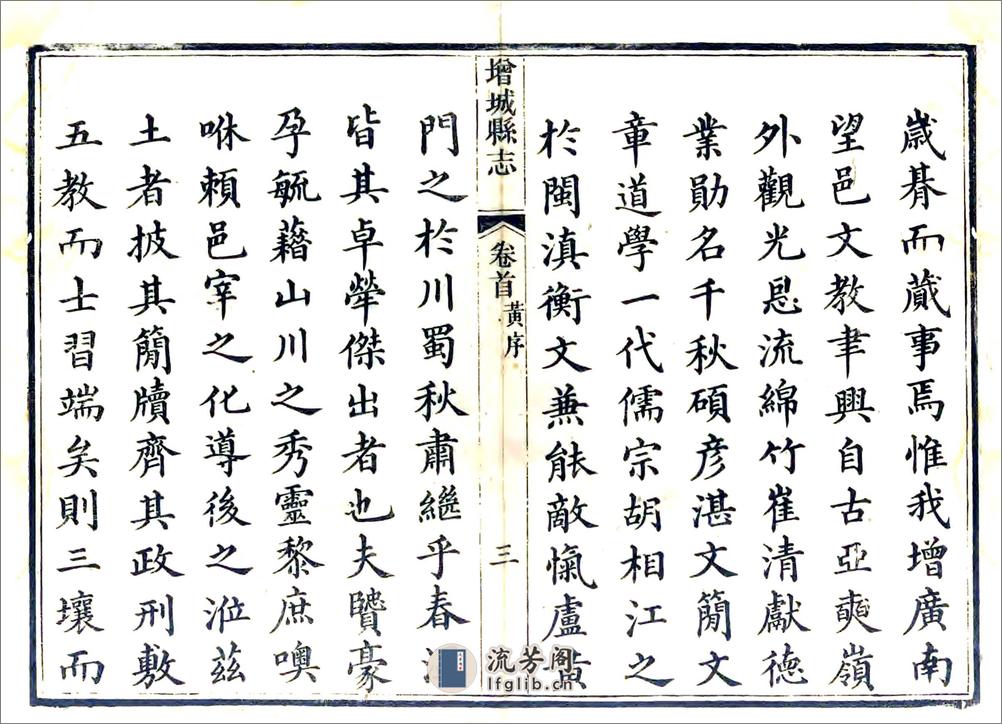 歲朞而蕆事焉惟我增廣南
望邑文教聿興自古亞奭嶺
外觀光恩流綿竹崔清獻德
業勛名千秋碩彥湛文簡文
章道學一代儒宗胡相江之
於閩滇衡文兼能敵愾盧黃
增城縣志 卷首 黃序 三
門之於川蜀秋肅繼乎春
皆其卓犖傑出者也夫賢豪
孕毓藉山川之秀靈黎庶噢
咻賴邑宰之化導後之涖茲
土者披其簡牘齊其政刑敷
五教而士習端矣則三壤而
流芳阁
lfglib.cn